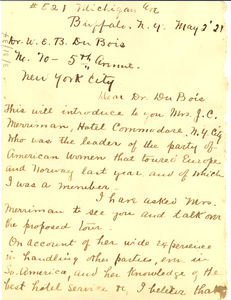 # 521 Michigan Ave
Buffalo, N.Y. May 2 '21
Dr. W. E. B. Du Bois
No. 70 - 5th Avenue.
New York City
Dear Dr. Du Bois
This will introduce to you Mrs. J.C.
Merriman, Hotel Commodore, N.Y. City
who was the leader of the party of
American Women that toured Europe
and Norway last year, and of which
I was a member.
I have asked Mrs.
Merriman to see you and talk over
the proposed tour.
On account of her wide experience
in handling other parties, even in
So. America, and her knowledge of the
best hotel service &c, I believe that